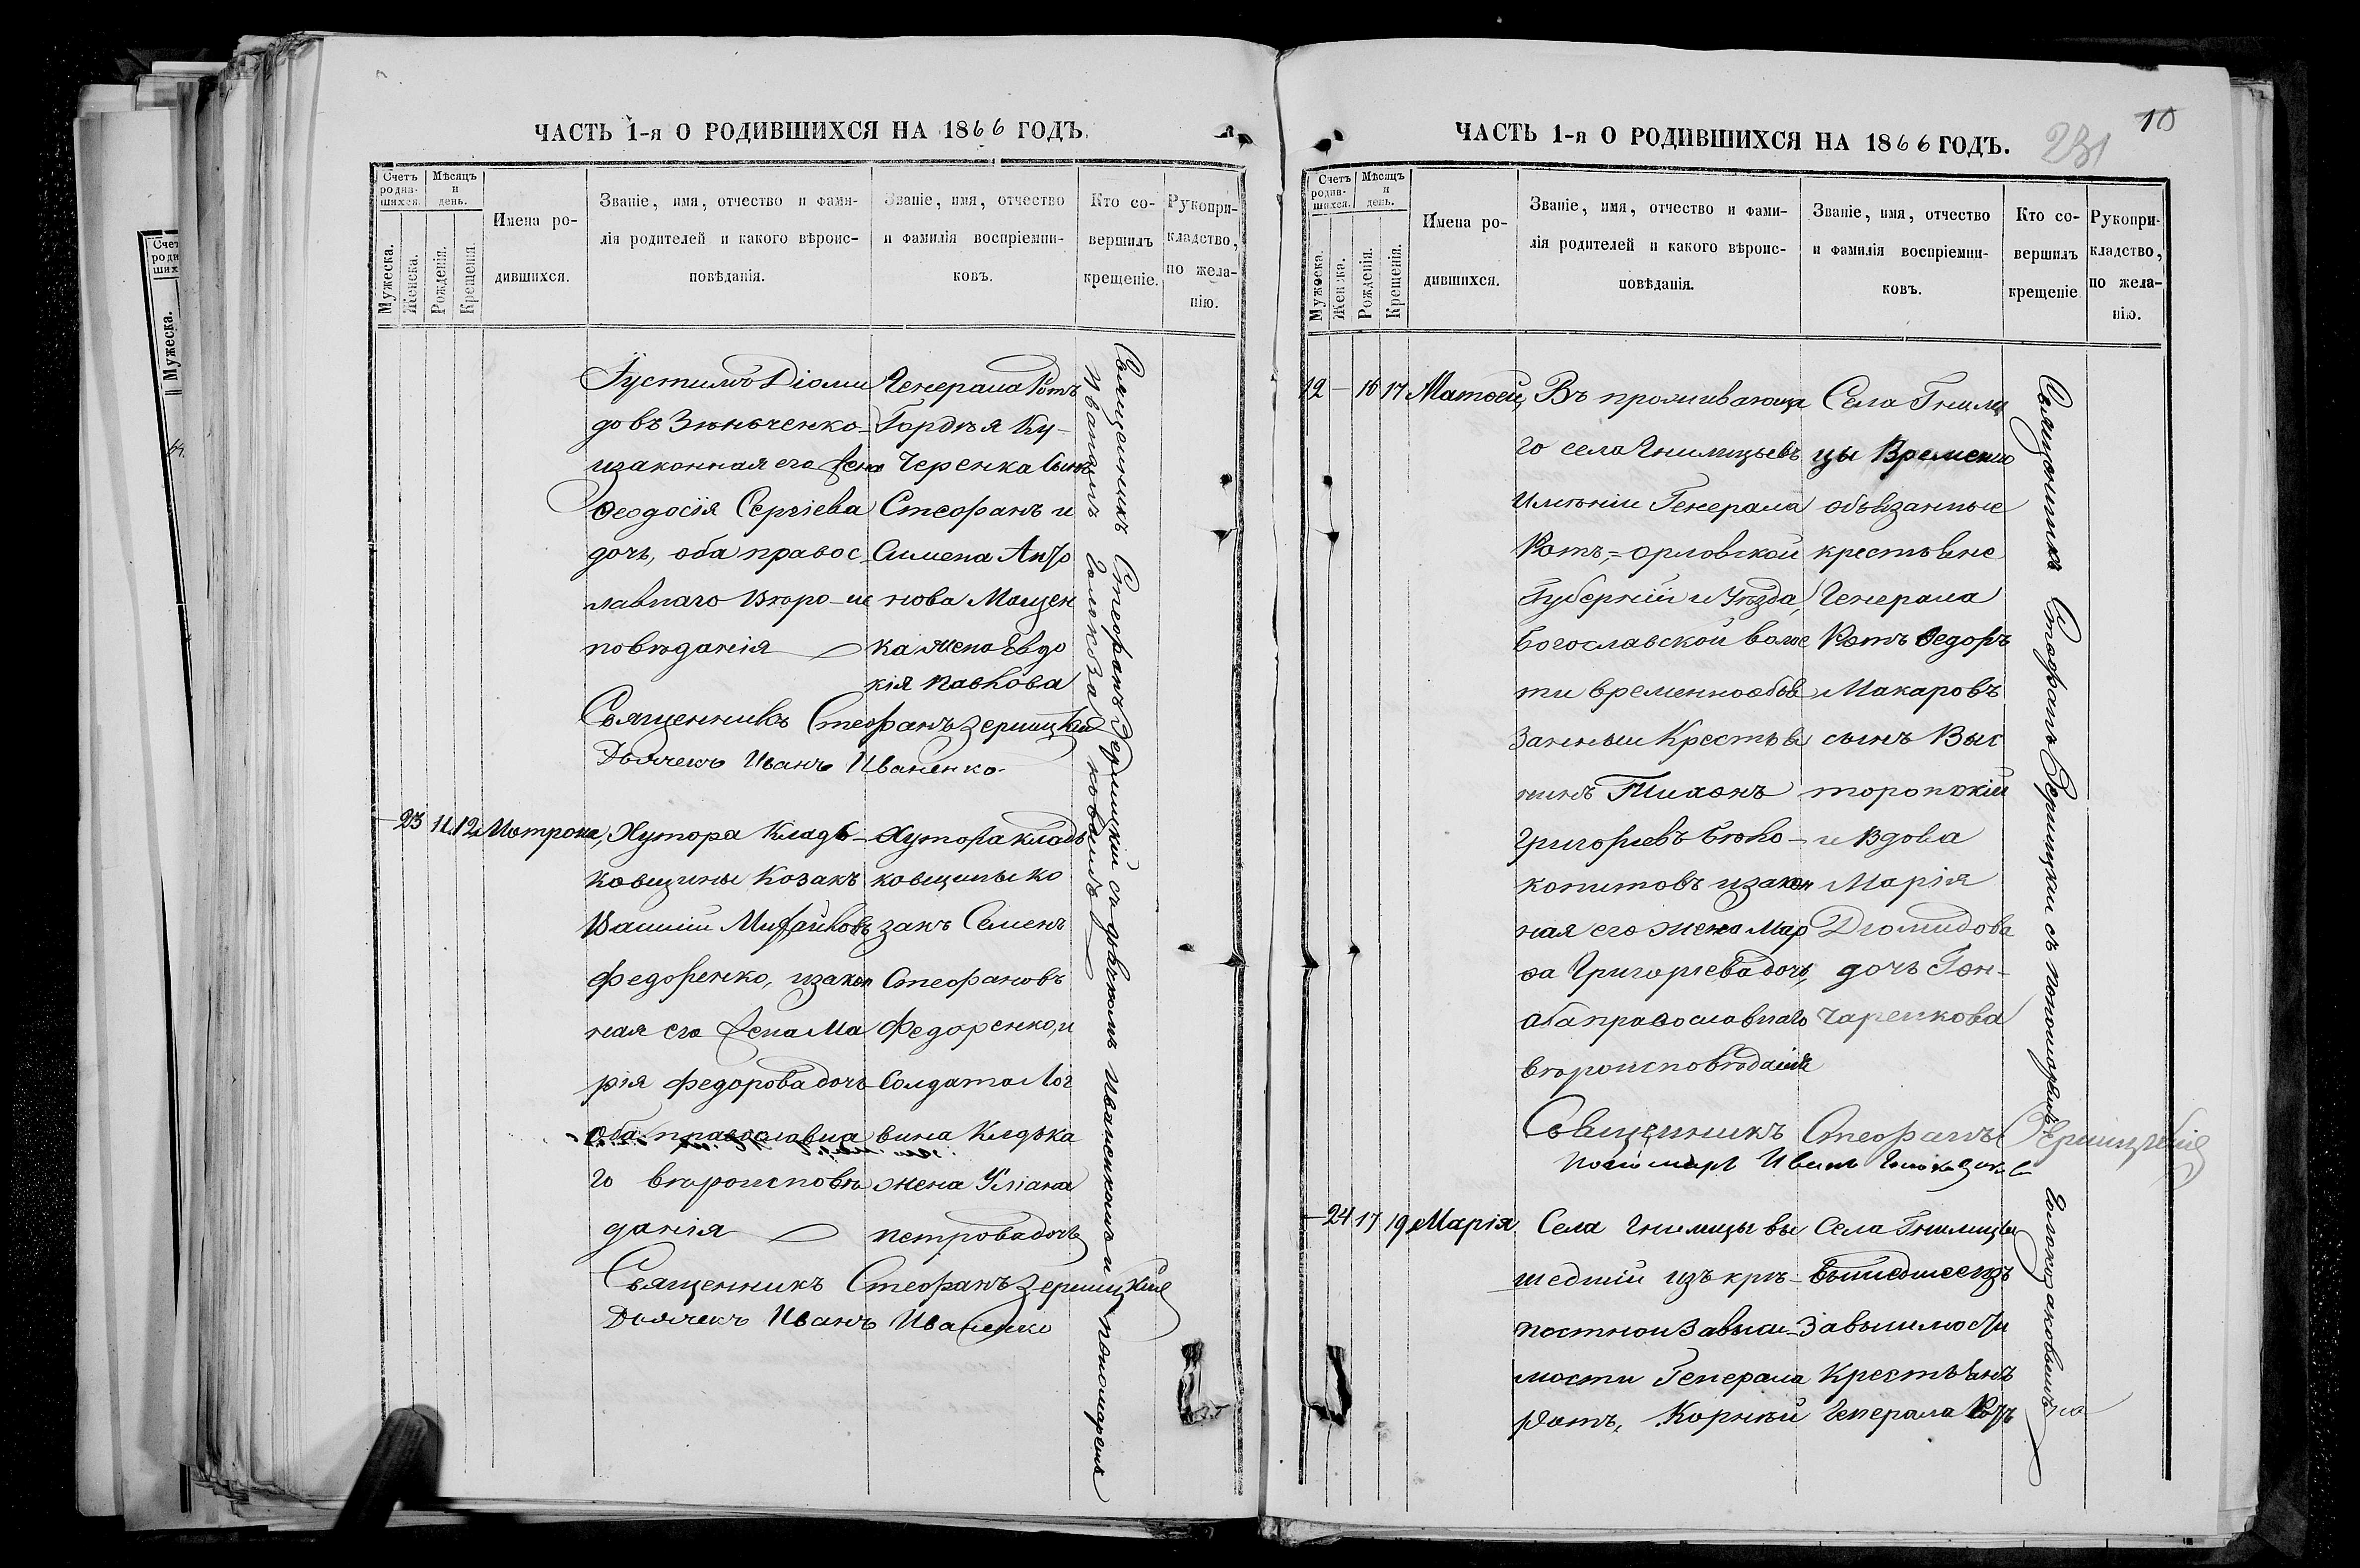 ЧАСТЬ 1-я О РОДИВШИХСЯ НА 1866 ГОДЪ.
Счетъ родив-шихся.
Мѣсяцъ и день.
Мужеска.
Женска.
Рожденія.
Крещенія.
Имена ро-
дившихся.
Званіе, имя, отчество и фами-
лія родителей и какого вѣроис-
повѣданія.
Званіе, имя, отчество
и фамилія воспріемни-
ковъ.
Кто со-
вершилъ
крещеніе.
Рукопри-
кладство,
по жела-
нію.
Іустимъ Діоми
довъ Зѣньченко
изаконная его жена
Ѳеодосія Сергіева
дочь, оба правос
лавнаго вѣро-ис
повѣданія
Генерала Ротъ
Гордѣя Ку-
черенка сынъ
Стефанъ и
Симена Анто
нова Мощен
ка жена Евдо
кія Павлова
Священникъ Стефанъ Зерницкій
Дьячекъ Иванъ Иваненко
Священникъ Стефанъ Зерницкій съ дьячкомъ Иваненкомъ и пономаремъ
Иваномъ
23 11 12 Мотрона, Хутора Кладь-
ковщины Козакъ
Василій Михайловъ
Федоренко, изакон
ная его жена Ма
рія Федорова дочь
оба православна
го вѣроисповѣ
данія
Хутора Кладь
ковщины ко
закъ Семенъ
Стефановъ
Федоренко, и
Солдата Лог
вина Кледька
жена Уліана
Петрова дочь
Священникъ Стефанъ Зерницкій
Дьячекъ Иванъ Иваненко
ЧАСТЬ 1-я О РОДИВШИХСЯ НА 1866 ГОДЪ.
231
10
Счетъ родив-шихся.
Мѣсяцъ и день.
Мужеска.
Женска.
Рожденія.
Крещенія.
Имена ро-
дившихся.
Званіе, имя, отчество и фами-
лія родителей и какого вѣроис-
повѣданія.
Званіе, имя, отчество
и фамилія воспріемни-
ковъ.
Кто со-
вершилъ
крещеніе
Рукопри-
кладство,
по жела-
нію.
12 — 16 17 Матѳей, Въ проживающа
го села Гнилицьевъ
имѣніи Генерала
Ротъ,=Орловской
Губерніи и Уѣзда,
Богославской волос
ти временнообьв
занный Крестьв
нинъ Тихонъ
Григорьевъ Бѣло-
копитовъ изакон
ная его жена Мар
ѳа Григорьева дочь,
оба православнаго
вѣроисповѣданія
Села Гнили
цы Временно
обьвзанные
крестьвне
Генерала
Ротъ Федоръ
Макаровъ
сынъ Выс
торопскій
и вдова
Марія
Дѣомидова
дочь Гон-
чаренкова
Священникъ Стефанъ Зерницкій
Пономарь Иванъ
Священникъ Стефанъ Зерницкій съ пономаремъ
24 17 19 Марія Села Гнилицы вы
шедшій изъ крѣ-
постной Зависи-
мости Генерала
Ротъ, Корнѣй
Села Гнилицы
вышедшеизъ
Зависимости
Крестьвнъ
Генерала Ротъ
Счет
роди
ших
Мужеска.